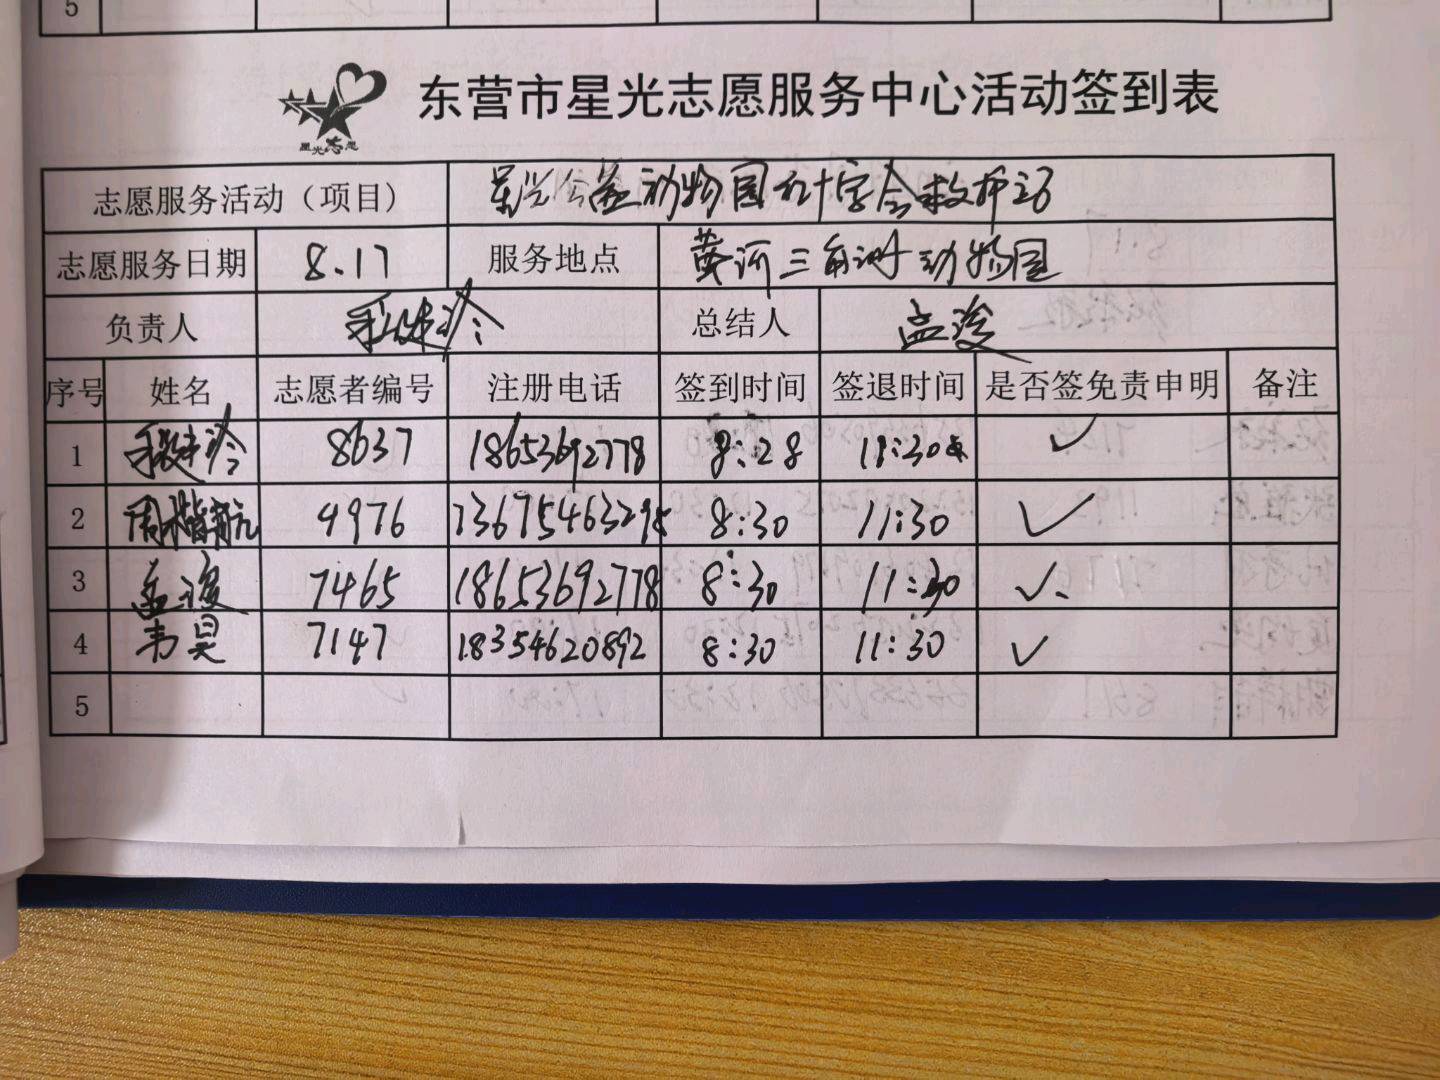 5
星光志愿
东营市星光志愿服务中心活动签到表
志愿服务活动（项目） 星光公益动物园红十字会救护站
志愿服务日期 8.17 服务地点 黄河三角洲动物园
负责人 总结人 孟浚
序号 姓名 志愿者编号 注册电话 签到时间 签退时间 是否签免责申明 备注
1 8637 18653692778 8:28 11:30 ✓
2 周楷航 4976 13675463295 8:30 11:30 ✓
3 孟浚 7465 18653692778 8:30 11:30 ✓
4 韦昊 7147 18354620892 8:30 11:30 ✓
5